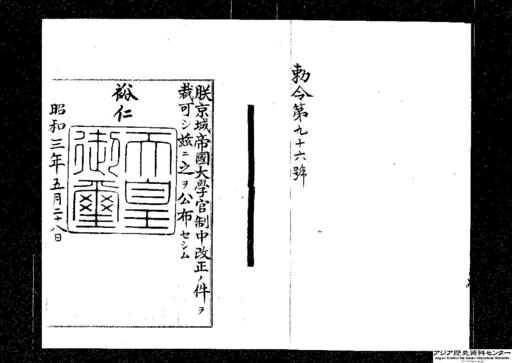 勅令第九十六號
朕京城帝國大學官制中改正ノ件ヲ
裁可シ玆ニ之ヲ公布セシム
裕仁
天皇
御璽
昭和三年五月二十八日
アジア歴史資料センター
Japan Center for Asian Historical Records